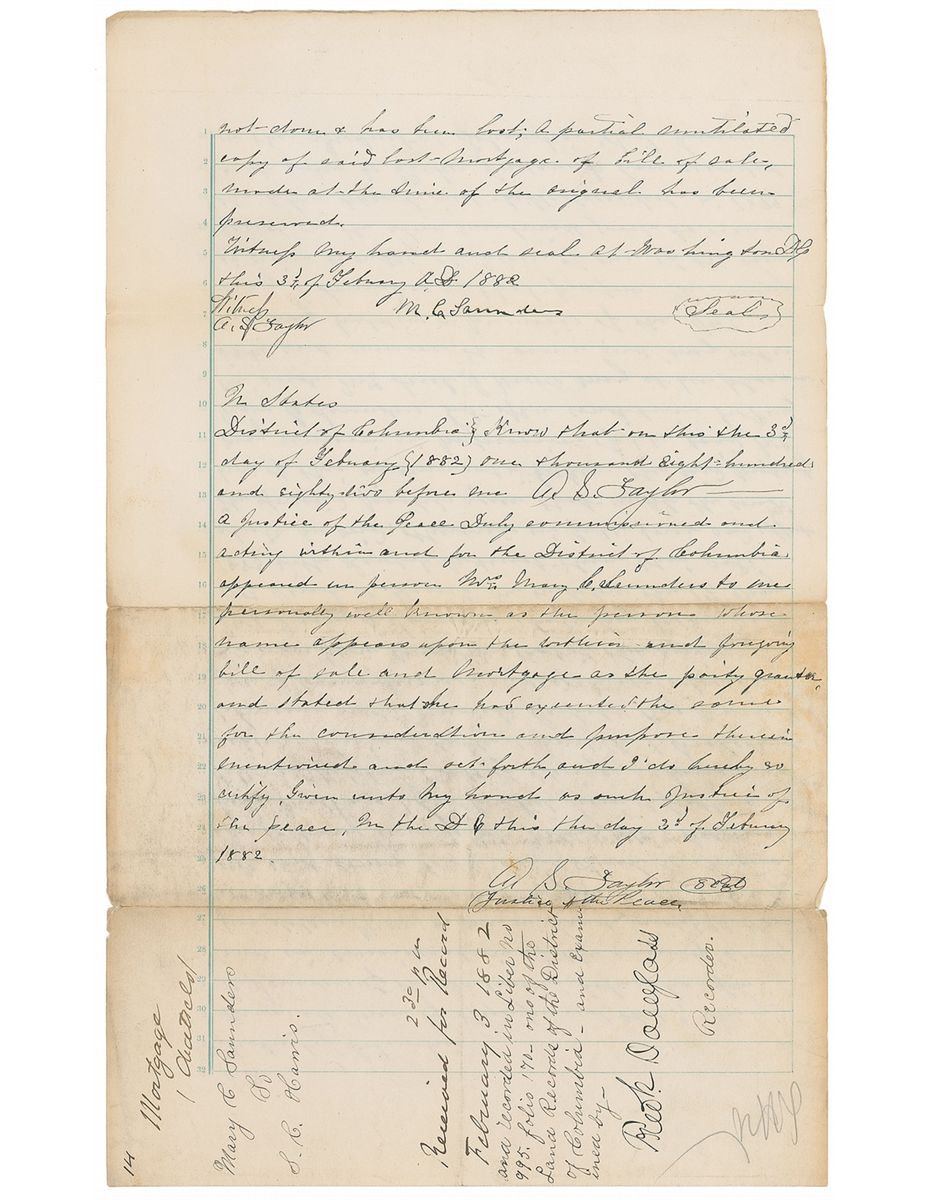 not done & has been lost; A partial mutilated
copy of said lost Mortgage of bill of sale,
made at the time of the original has been
preserved.
Witness my hand and seal at Washington DC
this 3d of Febuary A.D. 1882
Witness M. C. Saunders Seal
A. S. Taylor
States
District of Columbia } Know that on this the 3d
day of Febuary (1882) one thousand Eight hundred
and eighty two before me A. S. Taylor
a Justice of the Peace Duly commissioned and
acting within and for the District of Columbia
appeared in person Mrs Mary C. Saunders to me
personally well known as the person whose
name appears upon the within and foregoing
bill of sale and Mortgage as the party grantor,
and stated that she has executed the same
for the consideration and purpose therein
mentioned and set forth, and I do hereby so
certify. Given unto my hand as such Justice of
the peace, In the D C this the day 3d of Febuary
1882.
A. S. Taylor Seal
Justice of the Peace
14
Mortgage
(Chattels)
Mary C Saunders
to
S. R. Harris.
2 30 p m
Received for Record
February 3 1882
and recorded in Liber No
995. folio 170 one of the
Land Records of the District
of Columbia and Exam
ined by
Fredk Douglass
Recorder.
1
2
3
4
5
6
7
8
9
10
11
12
13
14
15
16
17
18
19
20
21
22
23
24
25
26
27
28
29
30
31
32